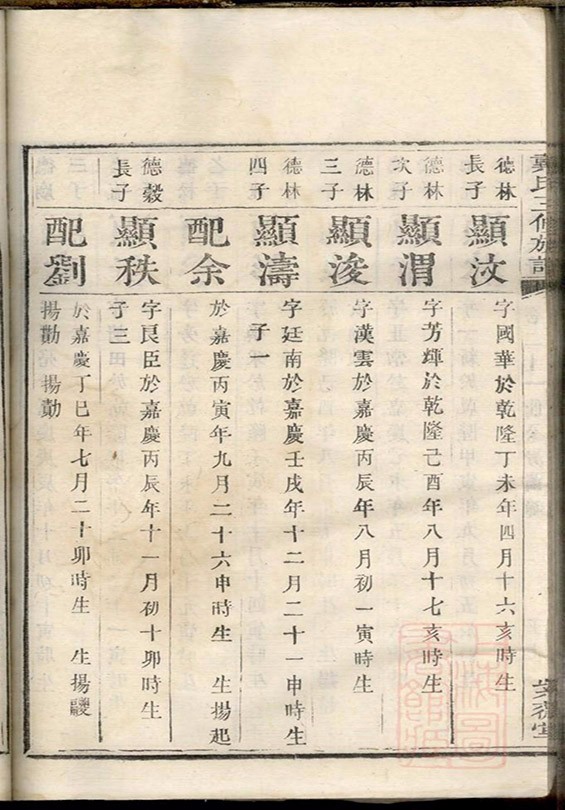 氏三修族譜
德林長子
顯汶
字國華於乾隆丁未年四月十六亥時生
德林次子
顯渭
字芳輝於乾隆己酉年八月十七亥時生
德林三子
顯浚
字漢雲於嘉慶丙辰年八月初一寅時生
德林四子
顯濤
字廷南於嘉慶壬戌年十二月二十一申時生
子一
配余
於嘉慶丙寅年九月二十六申時生 生揚起
德穀長子
顯秩
字良臣於嘉慶丙辰年十一月初十卯時生
子三
配劉
於嘉慶丁巳年七月二十卯時生 生揚
揚勸 揚勷